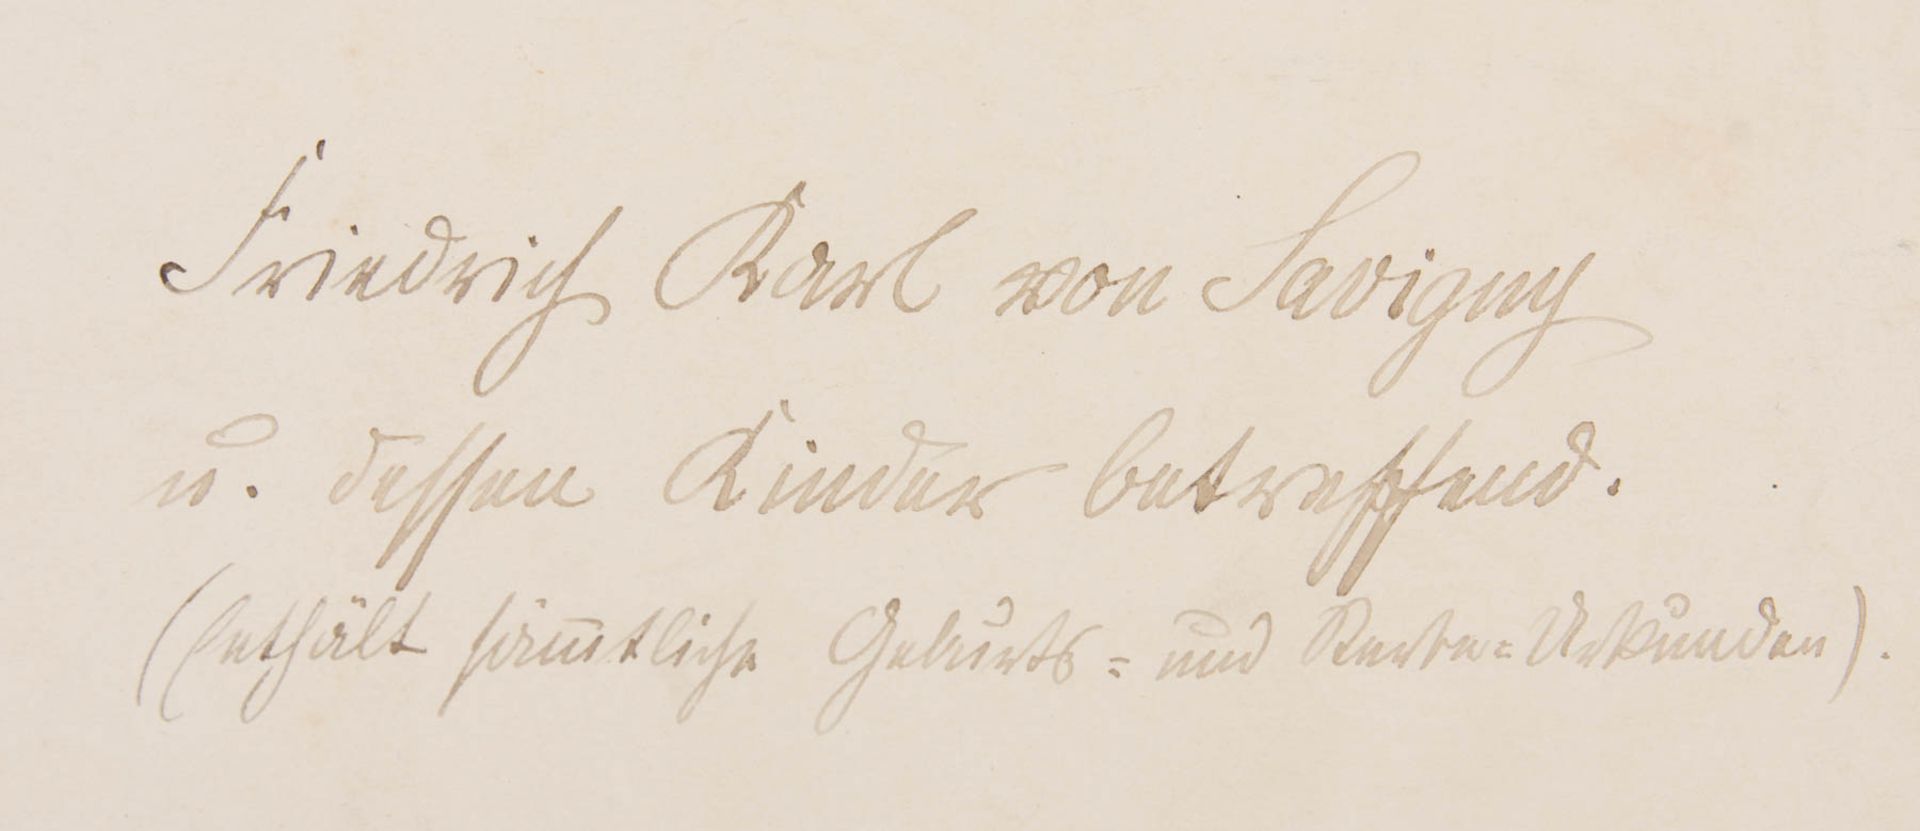 Friedrich Karl von Savigny
u. dessen Kinder betreffend.
(enthält sämtliche Geburts= und Urkunden).